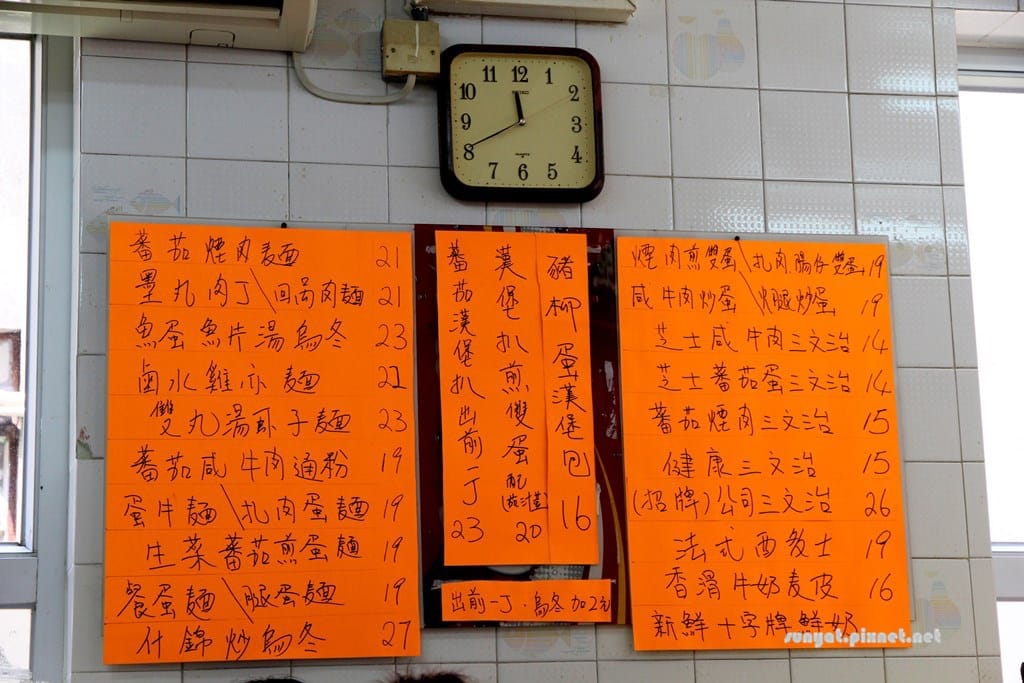 11 12 1
10 2
9 3
8 4
7 6 5
SEIKO
QUARTZ
蕃茄煙肉麵 21
墨丸肉丁\回呙肉麵 21
魚蛋魚片湯烏冬 23
鹵水雞亦麵 22
雙丸湯卧子麵 23
蕃茄咸牛肉通粉 19
蛋牛麵\扎肉蛋麵 19
生菜蕃茄煎蛋麵 19
餐蛋麵\腿蛋麵 19
什錦炒烏冬 27
豬柳蛋漢堡包 16
漢堡扒煎雙蛋 配 20
蕃茄漢堡扒出前一丁 23
出前一丁.烏冬加2元
煙肉煎雙蛋\扎肉腸仔雙蛋 19
咸牛肉炒蛋\火腿炒蛋 19
芝士咸牛肉三文治 14
芝士蕃茄蛋三文治 14
蕃茄煙肉三文治 15
健康三文治 15
(招牌)公司三文治 26
法式西多士 19
香滑牛奶麦皮 16
新鮮十字牌鮮奶
sunyat.pixnet.net